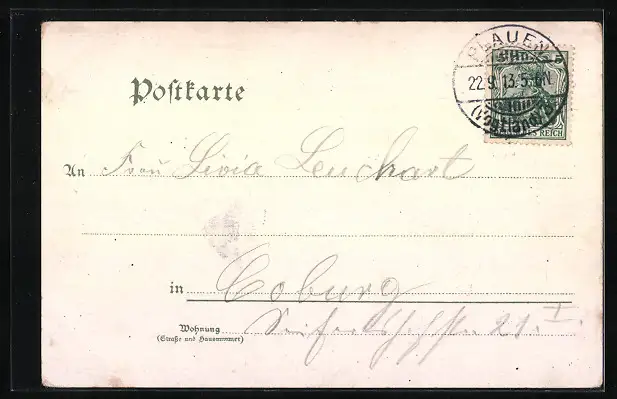 PLAUEN
22.9.13.5-6N
(Vogtland)
REICH
Postkarte
An Frau Livia Leuchart
in Coburg
Wohnung
(Straße und Hausnummer)
21. I.